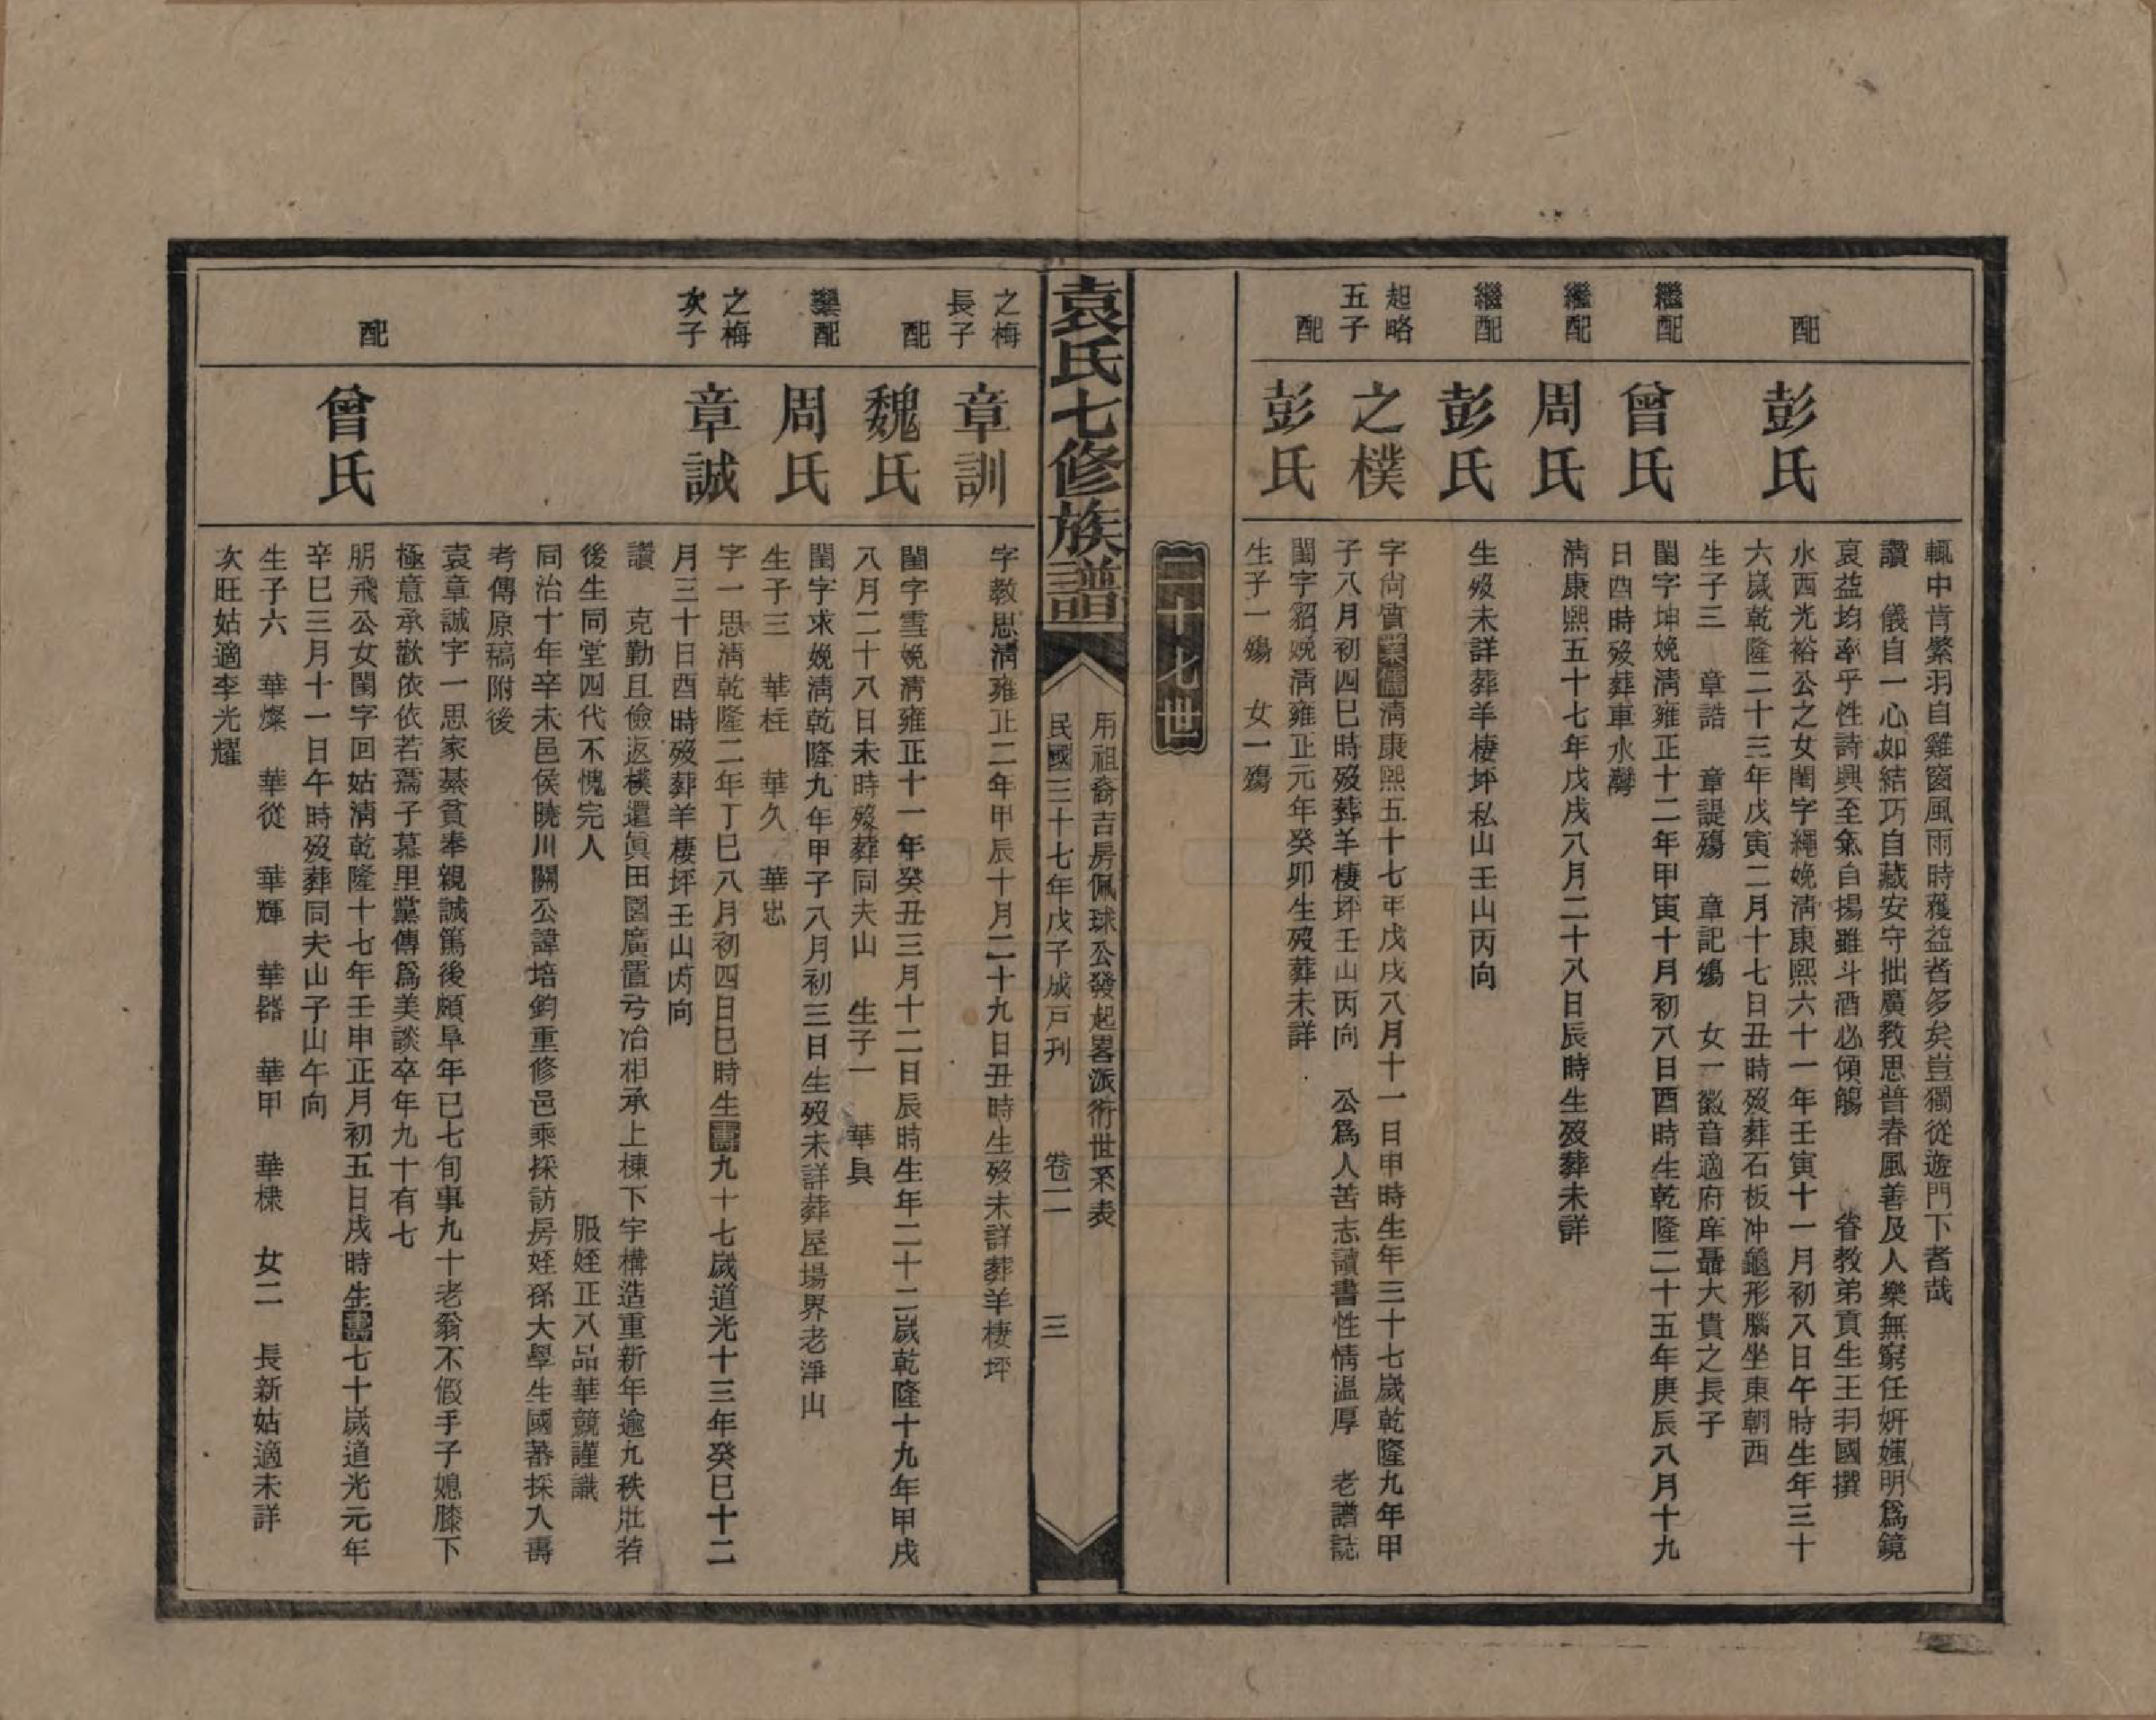 輒中肯綮羽自雞窗風雨時穫益者多矣豈獨從遊門下者哉
讚　儀自一心如結巧自藏安守拙廣教思普春風善及人樂無窮任妍媸明為鏡
哀益均牽乎性詩興至氣自揚雖斗酒必傾觴　　眷教弟貢生王羽國撰
配　彭氏　水西光裕公之女閨字繩娩清康熙六十一年壬寅十一月初八日午時生年三十
六歲乾隆二十三年戊寅二月十七日丑時歿葬石板冲龜形腦坐東朝西
生子三　章誥　章諟殤　章記殤　女一徽音適府庠聶大貴之長子
繼配　曾氏　閨字坤娩清雍正十二年甲寅十月初八日酉時生乾隆二十五年庚辰八月十九
日酉時歿葬車水灣
繼配　周氏　清康熙五十七年戊戌八月二十八日辰時生歿葬未詳
繼配　彭氏　生歿未詳葬羊棲坪私山壬山丙向
起略五子　之樸　字尚質業儒清康熙五十七年戊戌八月十一日申時生年三十七歲乾隆九年甲
子八月初四巳時歿葬羊棲坪壬山丙向　公為人苦志讀書性情温厚　老譜誌
配　彭氏　閨字貂娩清雍正元年癸卯生歿葬未詳
生子一殤　女一殤
二十七世
袁氏七修族譜
用祖裔吉房佩球公發起畧派衍世系表
民國三十七年戊子成戸刊　卷二　三
之梅長子　章訓　字教思清雍正二年甲辰十月二十九日丑時生歿未詳葬羊棲坪
配　魏氏　閨字雪娩清雍正十一年癸丑三月十二日辰時生年二十二歲乾隆十九年甲戌
八月二十八日未時歿葬同夫山　生子一　華具
繼配　周氏　閨字求娩清乾隆九年甲子八月初三日生歿未詳葬屋場界老淨山
生子三　華柱　華久　華忠
之梅次子　章誠　字一思清乾隆二年丁巳八月初四日巳時生壽九十七歲道光十三年癸巳十二
月三十日酉時歿葬羊棲坪壬山丙向
讚　克勤且儉返樸還眞田園廣置弓冶相承上棟下宇構造重新年逾九秩壯若
後生同堂四代不愧完人　　服姪正八品華競謹識
同治十年辛未邑侯曉川關公諱培鈞重修邑乘採訪房姪孫大學生國蕃採入壽
考傳原稿附後
袁章誠字一思家綦貧奉親誠篤後頗阜年已七旬事九十老翁不假手子媳膝下
極意承歡依依若孺子慕里黨傳為美談卒年九十有七
配　曾氏　朋飛公女閨字回姑清乾隆十七年壬申正月初五日戌時生壽七十歲道光元年
辛巳三月十一日午時歿葬同夫山子山午向
生子六　華燦　華從　華輝　華器　華甲　華樣　女二　長新姑適未詳
次旺姑適李光耀